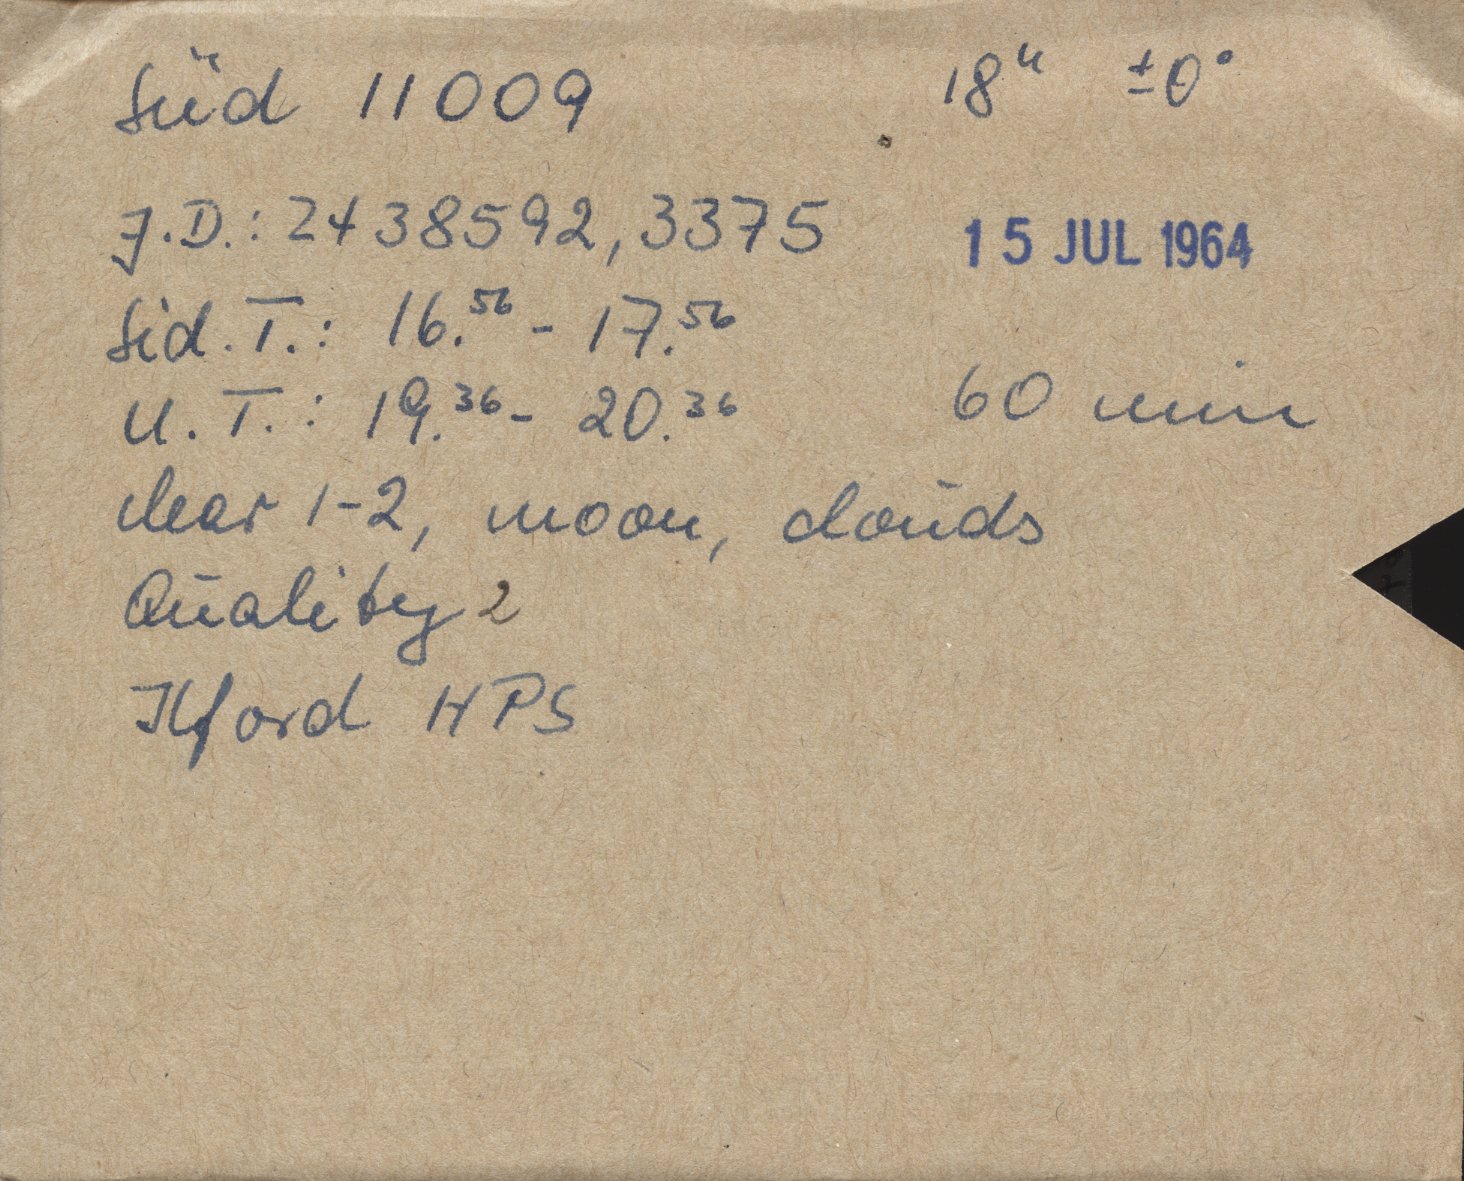 Süd 11009 18ʰ ±0°
J.D.: 2438592,3375 15 JUL 1964
Sid. T.: 16.⁵⁶ - 17.⁵⁶
U. T.: 19.³⁶ - 20.³⁶ 60 min
clear 1-2, moon, clouds
Quality 2
Ilford HPS